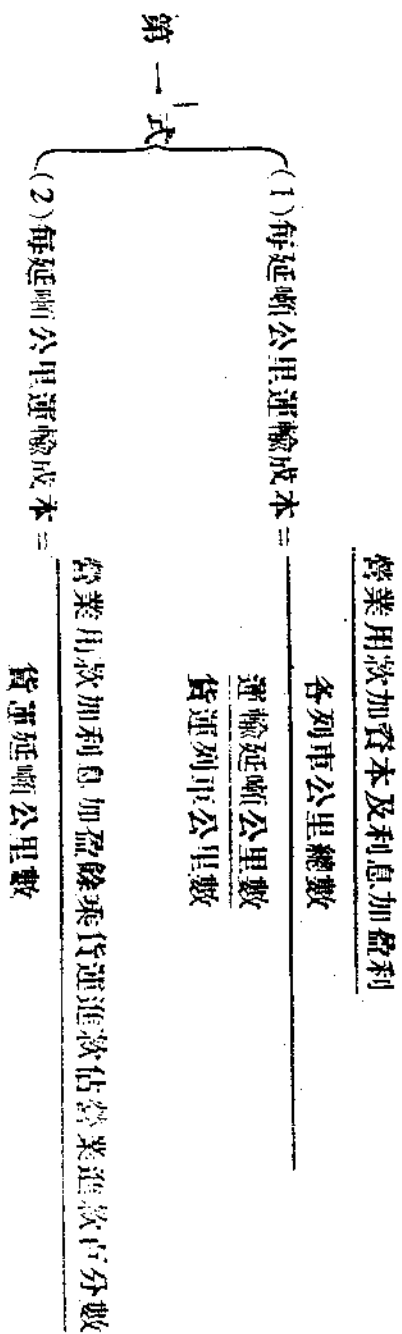 第一式
(1)每延噸公里運輸成本=
營業用款加資本及利息加盈利
各列車公里總數
運輸延噸公里數
貨運列車公里數
(2)每延噸公里運輸成本=
營業用款加利息加盈餘乘貨運進款佔營業進款百分數
貨運延噸公里數